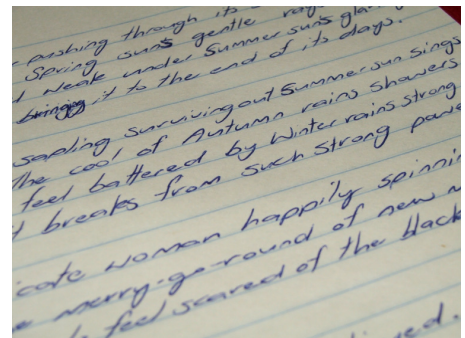 pushing through its
Spring sun's gentle
weak under Summer sun's
bringing it to the end of its days.
sapling surviving out Summer sun sings
The cool of Autumn rains showers
feel battered by Winter rains strong
breaks from such strong
woman happily
merry-go-round of new
feel scared of the black